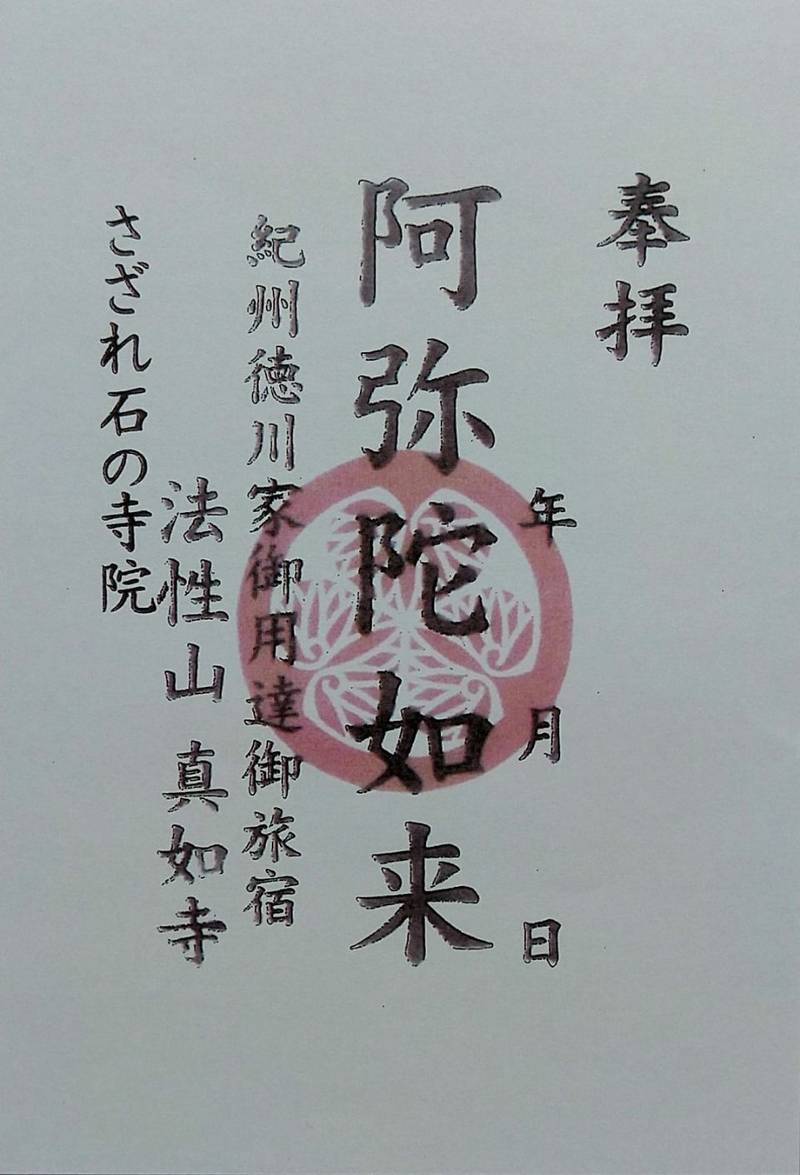 奉拝
年 月 日
阿弥陀如来
紀州徳川家御用達御旅宿
法性山 真如寺
さざれ石の寺院